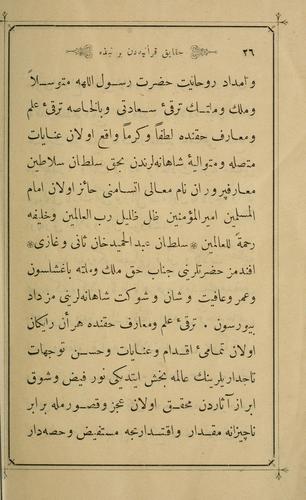 ٣٦ حقایق قرآنیه‌دن بر نبذه
وامداد روحانیت حضرت رسول اللهه متوسلاً
وملك وملتك ترقئ سعادتی وبالخاصه ترقئ علم
ومعارف حقنده لطفاً وكرماً واقع اولان عنایات
متصله ومتوالیهٔ شاهانه‌لرندن بحق سلطان سلاطین
معارفپروران نام معالی اتسامنی حائز اولان امام
المسلمین امیرالمؤمنین ظل ظلیل رب العالمین وخلیفه
رحمةً للعالمین * سلطان عبد الحمید خان ثانی وغازی *
افندمز حضرتلرینی جناب حق ملك وملته باغشلسون
وعمر وعافیت و شان و شوكت شاهانه‌لرینی مزداد
بیورسون . ترقئ علم ومعارف حقنده هر آن رایكان
اولان تمامئ اقدام وعنایات وحسن توجهات
تاجداریلرینك عالمه بخش ایتدیكی نور فیض وشوق
ابراز آثاردن محقق اولان عجز وقصورمله برابر
ناچیزانه مقدار واقتداریجه مستفیض وحصه‌دار